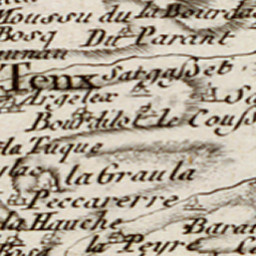 Moussu du la Bourda
Bosq Du Parant
Tenx Satgasset
Argelex Sa
Bourdilot le Couss
la Tuque
la Graula
Peccarerre
la Hauche Barat
la Peyre